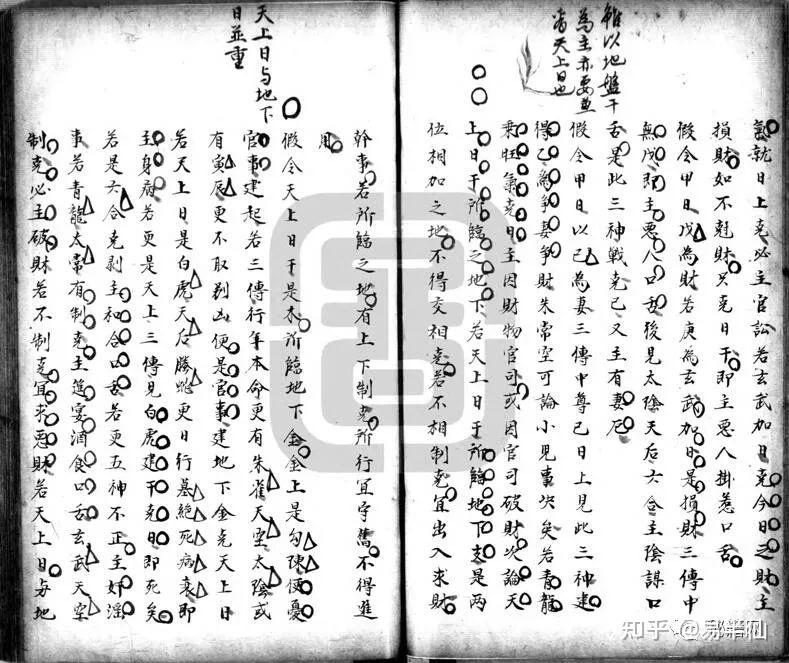 雖以地盤干
為主亦要並
看天上日也
就日上克必主官訟若玄武加日克今日之財主
損財如不尅財只克日干即主惡人掛惹口舌
假令甲日戊為財若庚為玄武加日是損財三傳中
無戊即主惡人口舌後見太陰天后六合主陰謀口
舌是此三神戰克已又主有妻厄
假令甲日以己為妻三傳中尊已日上見此三神建
得己為爭妻爭財朱常空可論小兒事次矣若青龍
乘旺氣克日主因財物官司或因官司破財次論天
上日于所臨之地下若天上日于所臨地下支是兩
位相加之地不得交相克若不相制克宜出入求財
天上日与地下
日並重
幹事若所臨之地有上下制克所行宜守舊不得進
用
假令天上日干是木所臨地下金金上是勾陳便憂
官事建起若三傳行年本命更有朱雀天空太陰或
有寅辰更不取别凶便是官事建地下金克天上日
若天上日是白虎天后騰蛇更日行墓絶死病衰即
主身病若更是天上三傳見白虎建干克日即死矣
若是六合克剥主和合口舌若更五神不正主奸淫
事若青龍太常有制克主進宴酒食口舌玄武天空
制克必主破財若不制克宜求惡財若天上日与地
知乎 @易半仙